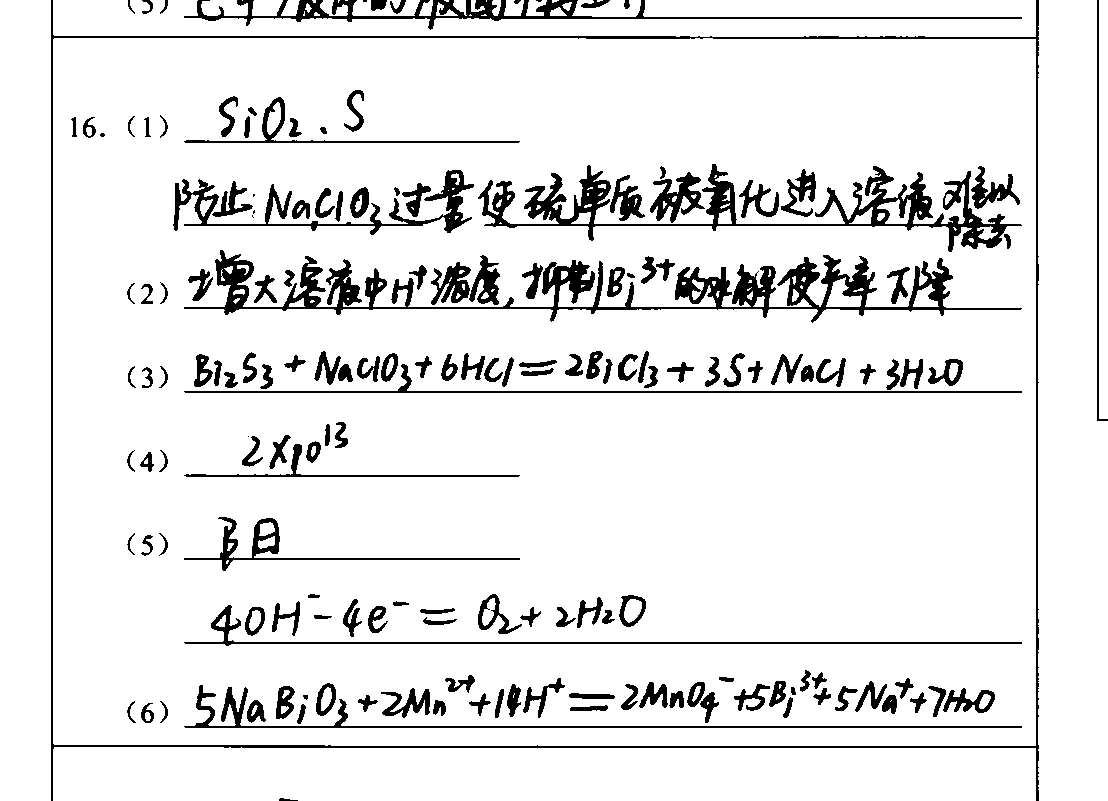 16.(1) SiO₂、S
防止NaClO₃过量使硫单质被氧化进入溶液难以除去
(2) 增大溶液中H⁺浓度,抑制Bi³⁺的水解使产率下降
(3) Bi₂S₃+NaClO₃+6HCl=2BiCl₃+3S+NaCl+3H₂O
(4) 2×10¹³
(5) 阳
4OH⁻-4e⁻=O₂+2H₂O
(6) 5NaBiO₃+2Mn²⁺+14H⁺=2MnO₄⁻+5Bi³⁺+5Na⁺+7H₂O